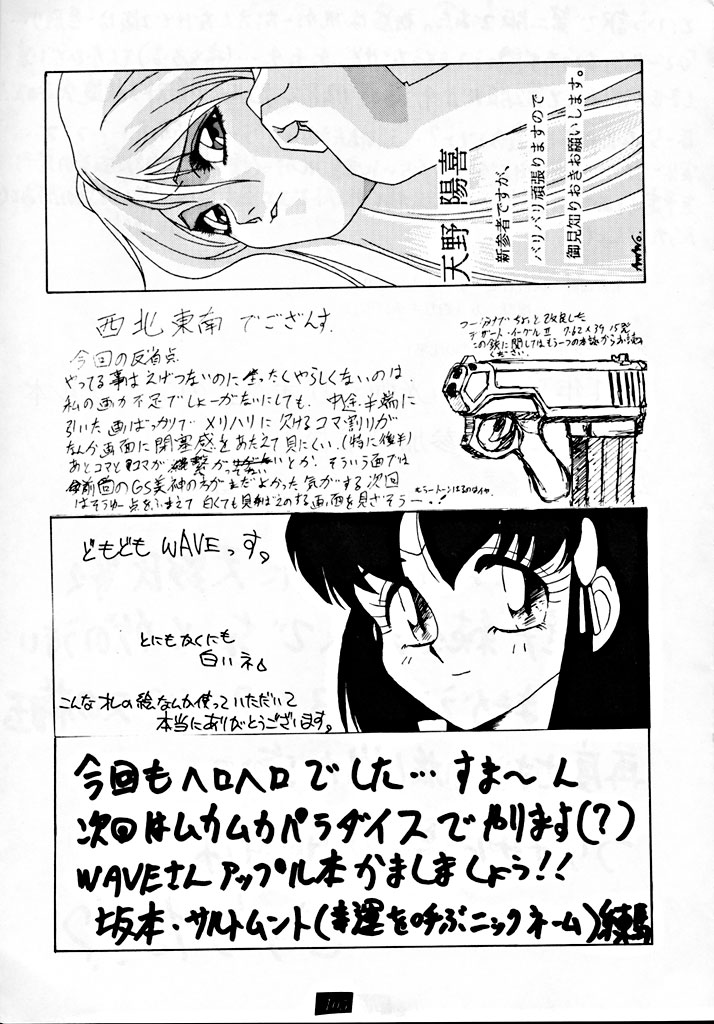 天野 陽喜
新参者ですが、
バリバリ頑張りますので
御見知りおきお願いします。
AMANO.
西北東南でござんす.
今回の反省点
やってる事はえげつないのに全ったくやらしくないのは、
私の画力不足でしょーがないにしても、中途半端に
引いた画ばっかりでメリハリに欠けるコマ割りが
なんか画面に閉塞感をあたえて見にくい.(特に後半)
あとコマとコマが
とか、そういう面では
前回のGS美神の方がまだよかった気がする次回
はそうゆー点をふまえて白くても見ばえのする画面を目ざそうー・・!
ちょっと改良した
デザートイーグルII 7.62×39 15発
この銃に関してはもう一つの本誌からお読み
ください.
どもどもWAVEっす。
とにもかくにも
白いネ
こんな私の絵なんか使っていただいて
本当にありがとうございます。
今回もヘロヘロでした…すま〜ん
次回はムカムカパラダイスでやります(?)
WAVEさんアップル本かましましょう!!
坂本・サルトムント(幸運を呼ぶニックネーム)練馬